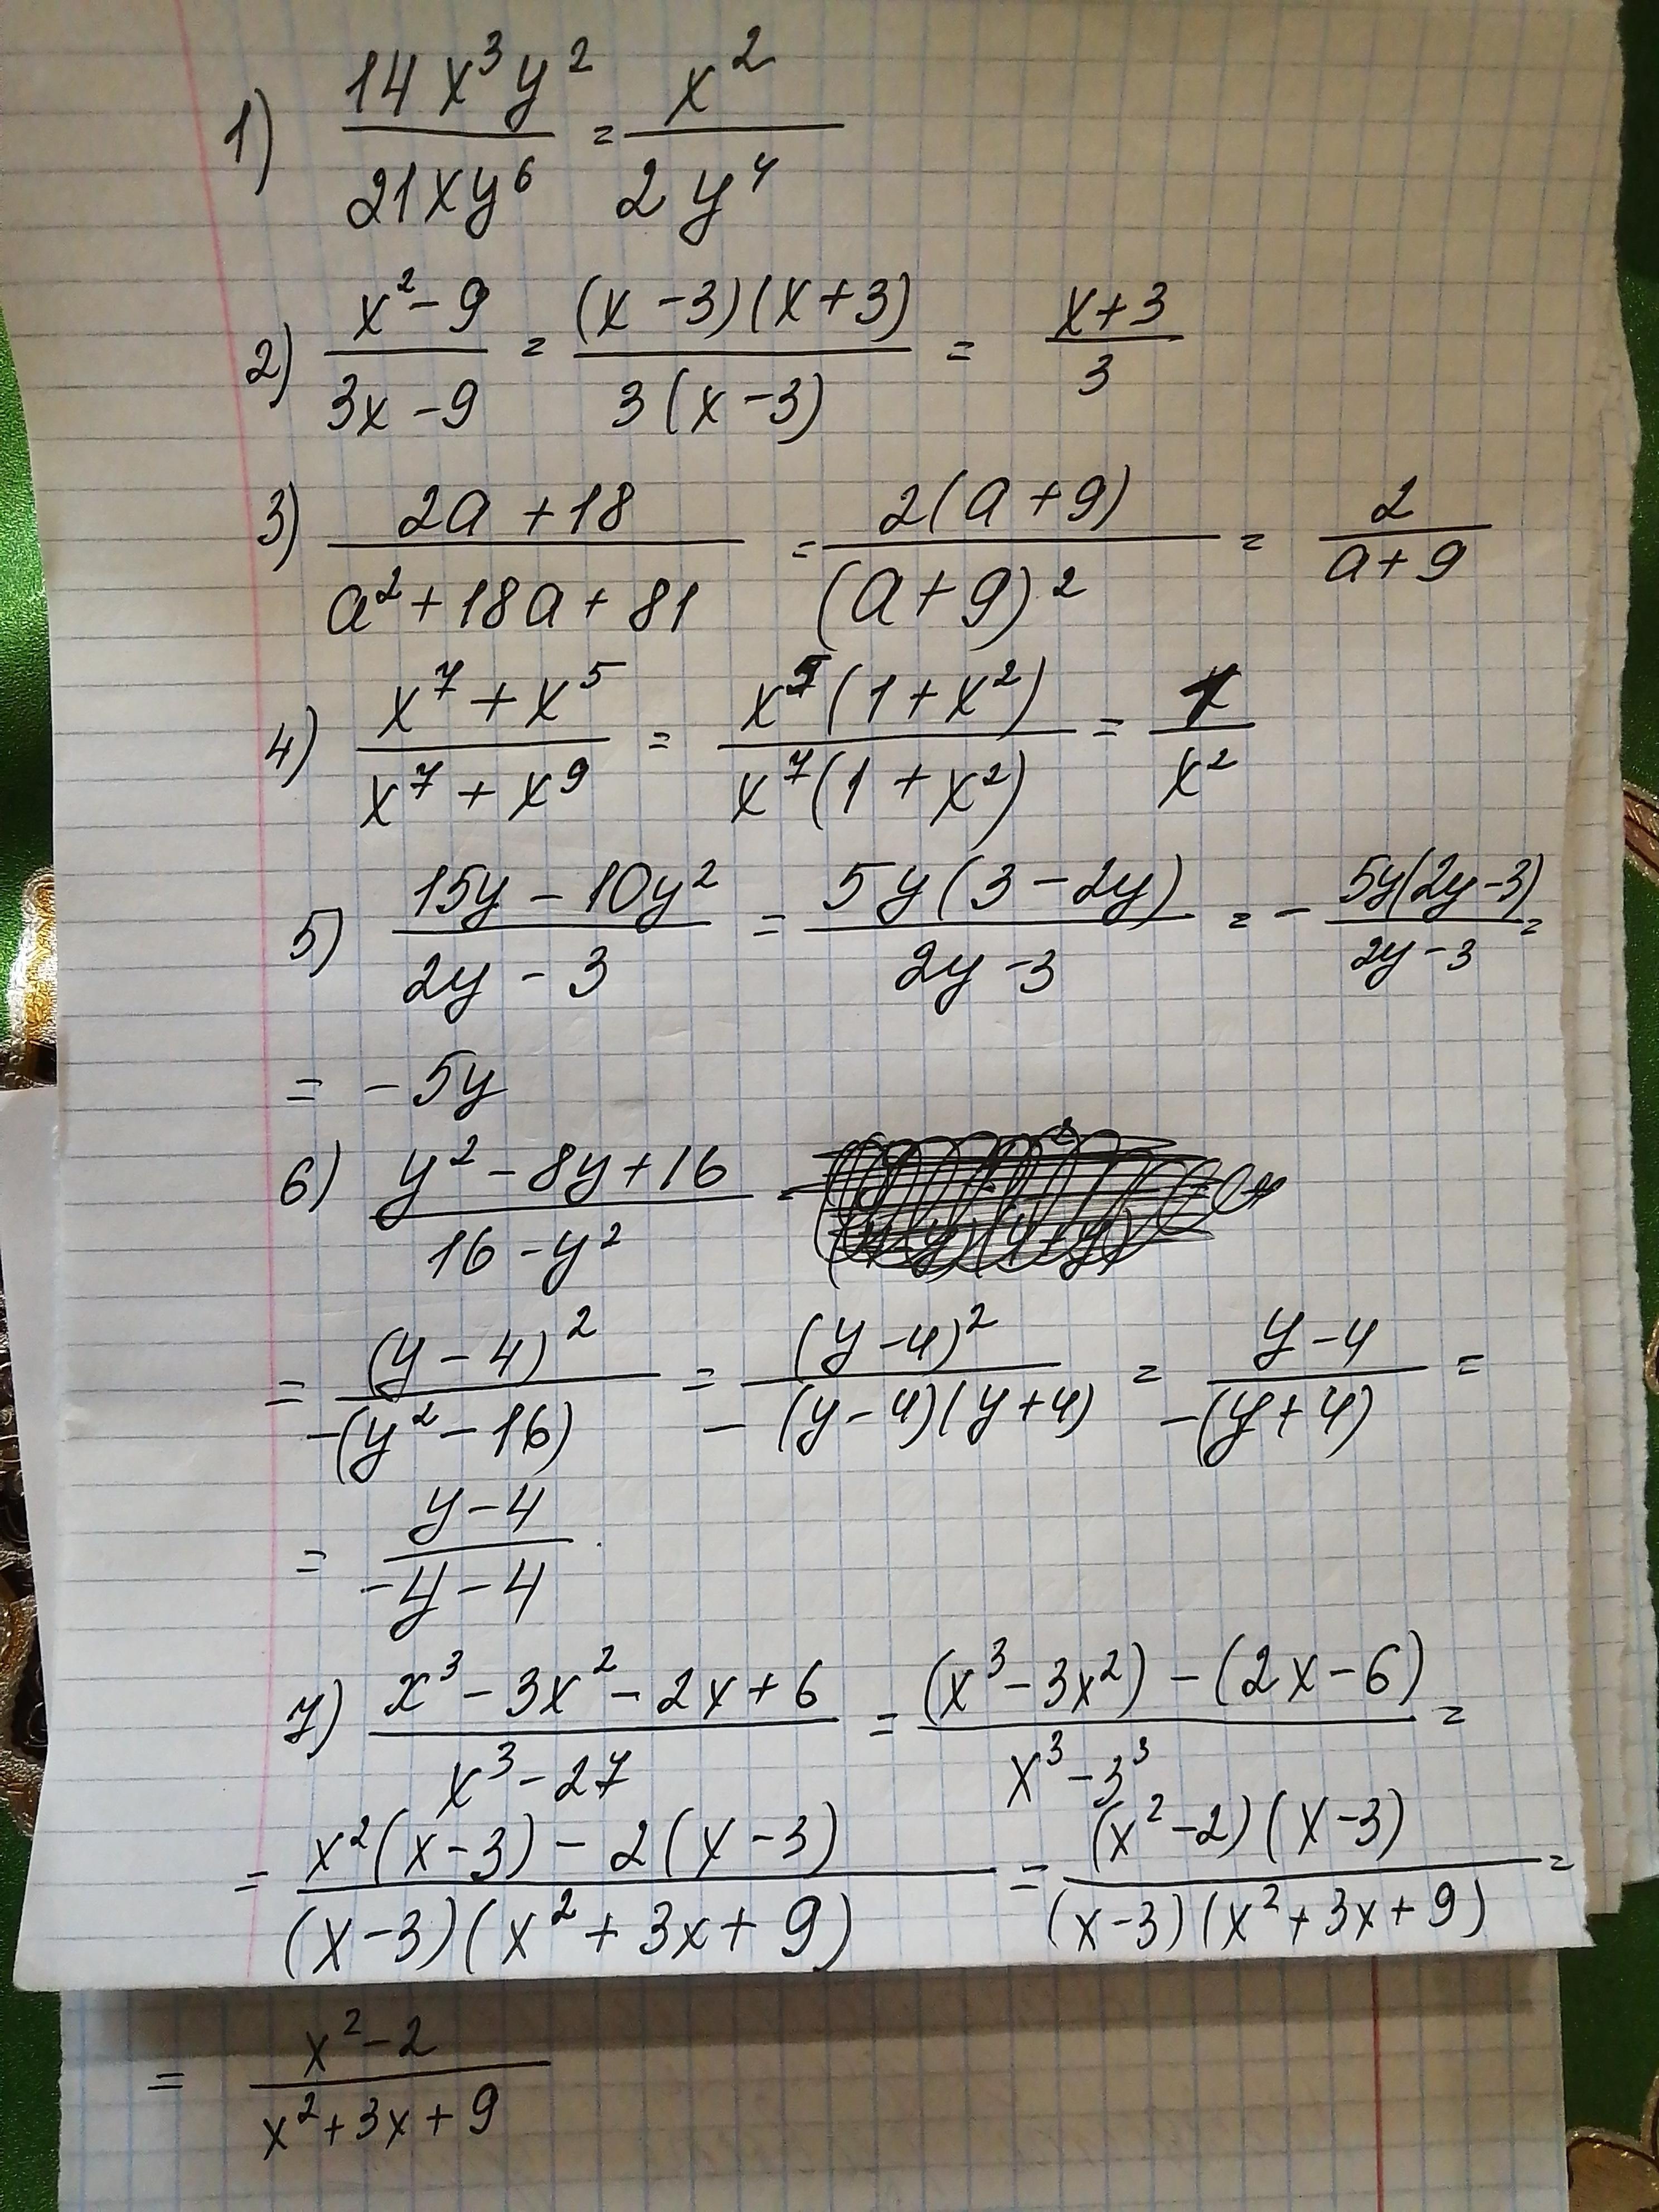 1) 14x³y² / 21xy⁶ = x² / 2y⁴
2) x² - 9 / 3x - 9 = (x - 3)(x + 3) / 3(x - 3) = x + 3 / 3
3) 2a + 18 / a² + 18a + 81 = 2(a + 9) / (a + 9)² = 2 / a + 9
4) x⁷ + x⁵ / x⁷ + x⁹ = x⁵(1 + x²) / x⁷(1 + x²) = 1 / x²
5) 15y - 10y² / 2y - 3 = 5y(3 - 2y) / 2y - 3 = - 5y(2y - 3) / 2y - 3 =
= - 5y
6) y² - 8y + 16 / 16 - y² =
= (y - 4)² / -(y² - 16) = (y - 4)² / -(y - 4)(y + 4) = y - 4 / -(y + 4) =
= y - 4 / -y - 4
7) x³ - 3x² - 2x + 6 / x³ - 27 = (x³ - 3x²) - (2x - 6) / x³ - 3³ =
= x²(x - 3) - 2(x - 3) / (x - 3)(x² + 3x + 9) = (x² - 2)(x - 3) / (x - 3)(x² + 3x + 9) =
= x² - 2 / x² + 3x + 9